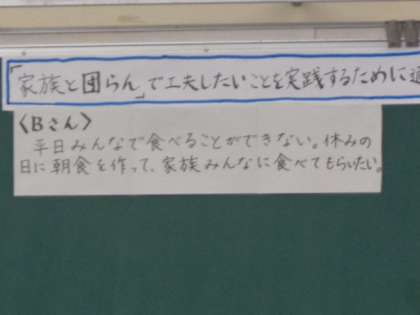 「家族と団らん」で工夫したいことを実践するために
〈Bさん〉
平日みんなで食べることができない。休みの
日に朝食を作って、家族みんなに食べてもらいたい。